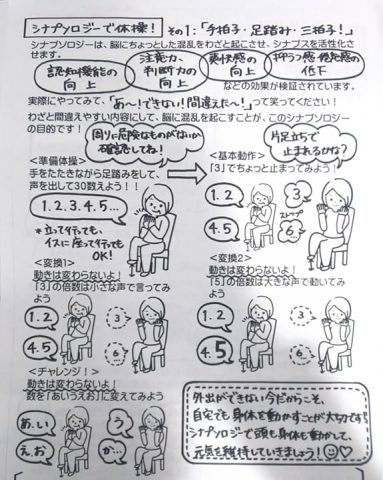 シナプソロジーで体操! その1:「手拍子・足踏み・三拍子!」
シナプソロジーは、脳にちょっとした混乱をわざと起こさせ、シナプスを活性化さ
せます。
認知機能の向上
注意力、判断力の向上
爽快感の向上
抑うつ感・倦怠感の低下
などの効果が検証されています。
実際にやってみて、「あ〜!できない!間違えた〜!」って笑ってください!
わざと間違えやすい内容にして、脳に混乱を起こすことが、このシナプソロジー
の目的です!
周りに危険なものがないか
確認をしてね!
片足立ちで
止まれるかな?
<準備体操>
手をたたきながら足踏みをして、
声を出して30数えよう!!
1.2.3.4.5…
*立って行ても、
イスに座って行ても
OK!
<基本動作>
「3」でちょっと止まってみよう!
1.2
3
ストップ
4.5
6
<変換1>
動きは変わらないよ!
「3」の倍数は小さな声で言ってみ
よう
1.2
3
4.5
6
<変換2>
動きは変わらないよ!
「5」の倍数は大きな声で動いてみ
よう
1.2
3
4.5
6
<チャレンジ!>
動きは変わらないよ!
数を「あいうえお」に変えてみよう
あ.い
う
え.お
か…
外出ができない今だからこそ、
自宅でも身体を動かすことが大切です
シナプソロジーで頭も身体も動かして、
元気を維持していきましょう!